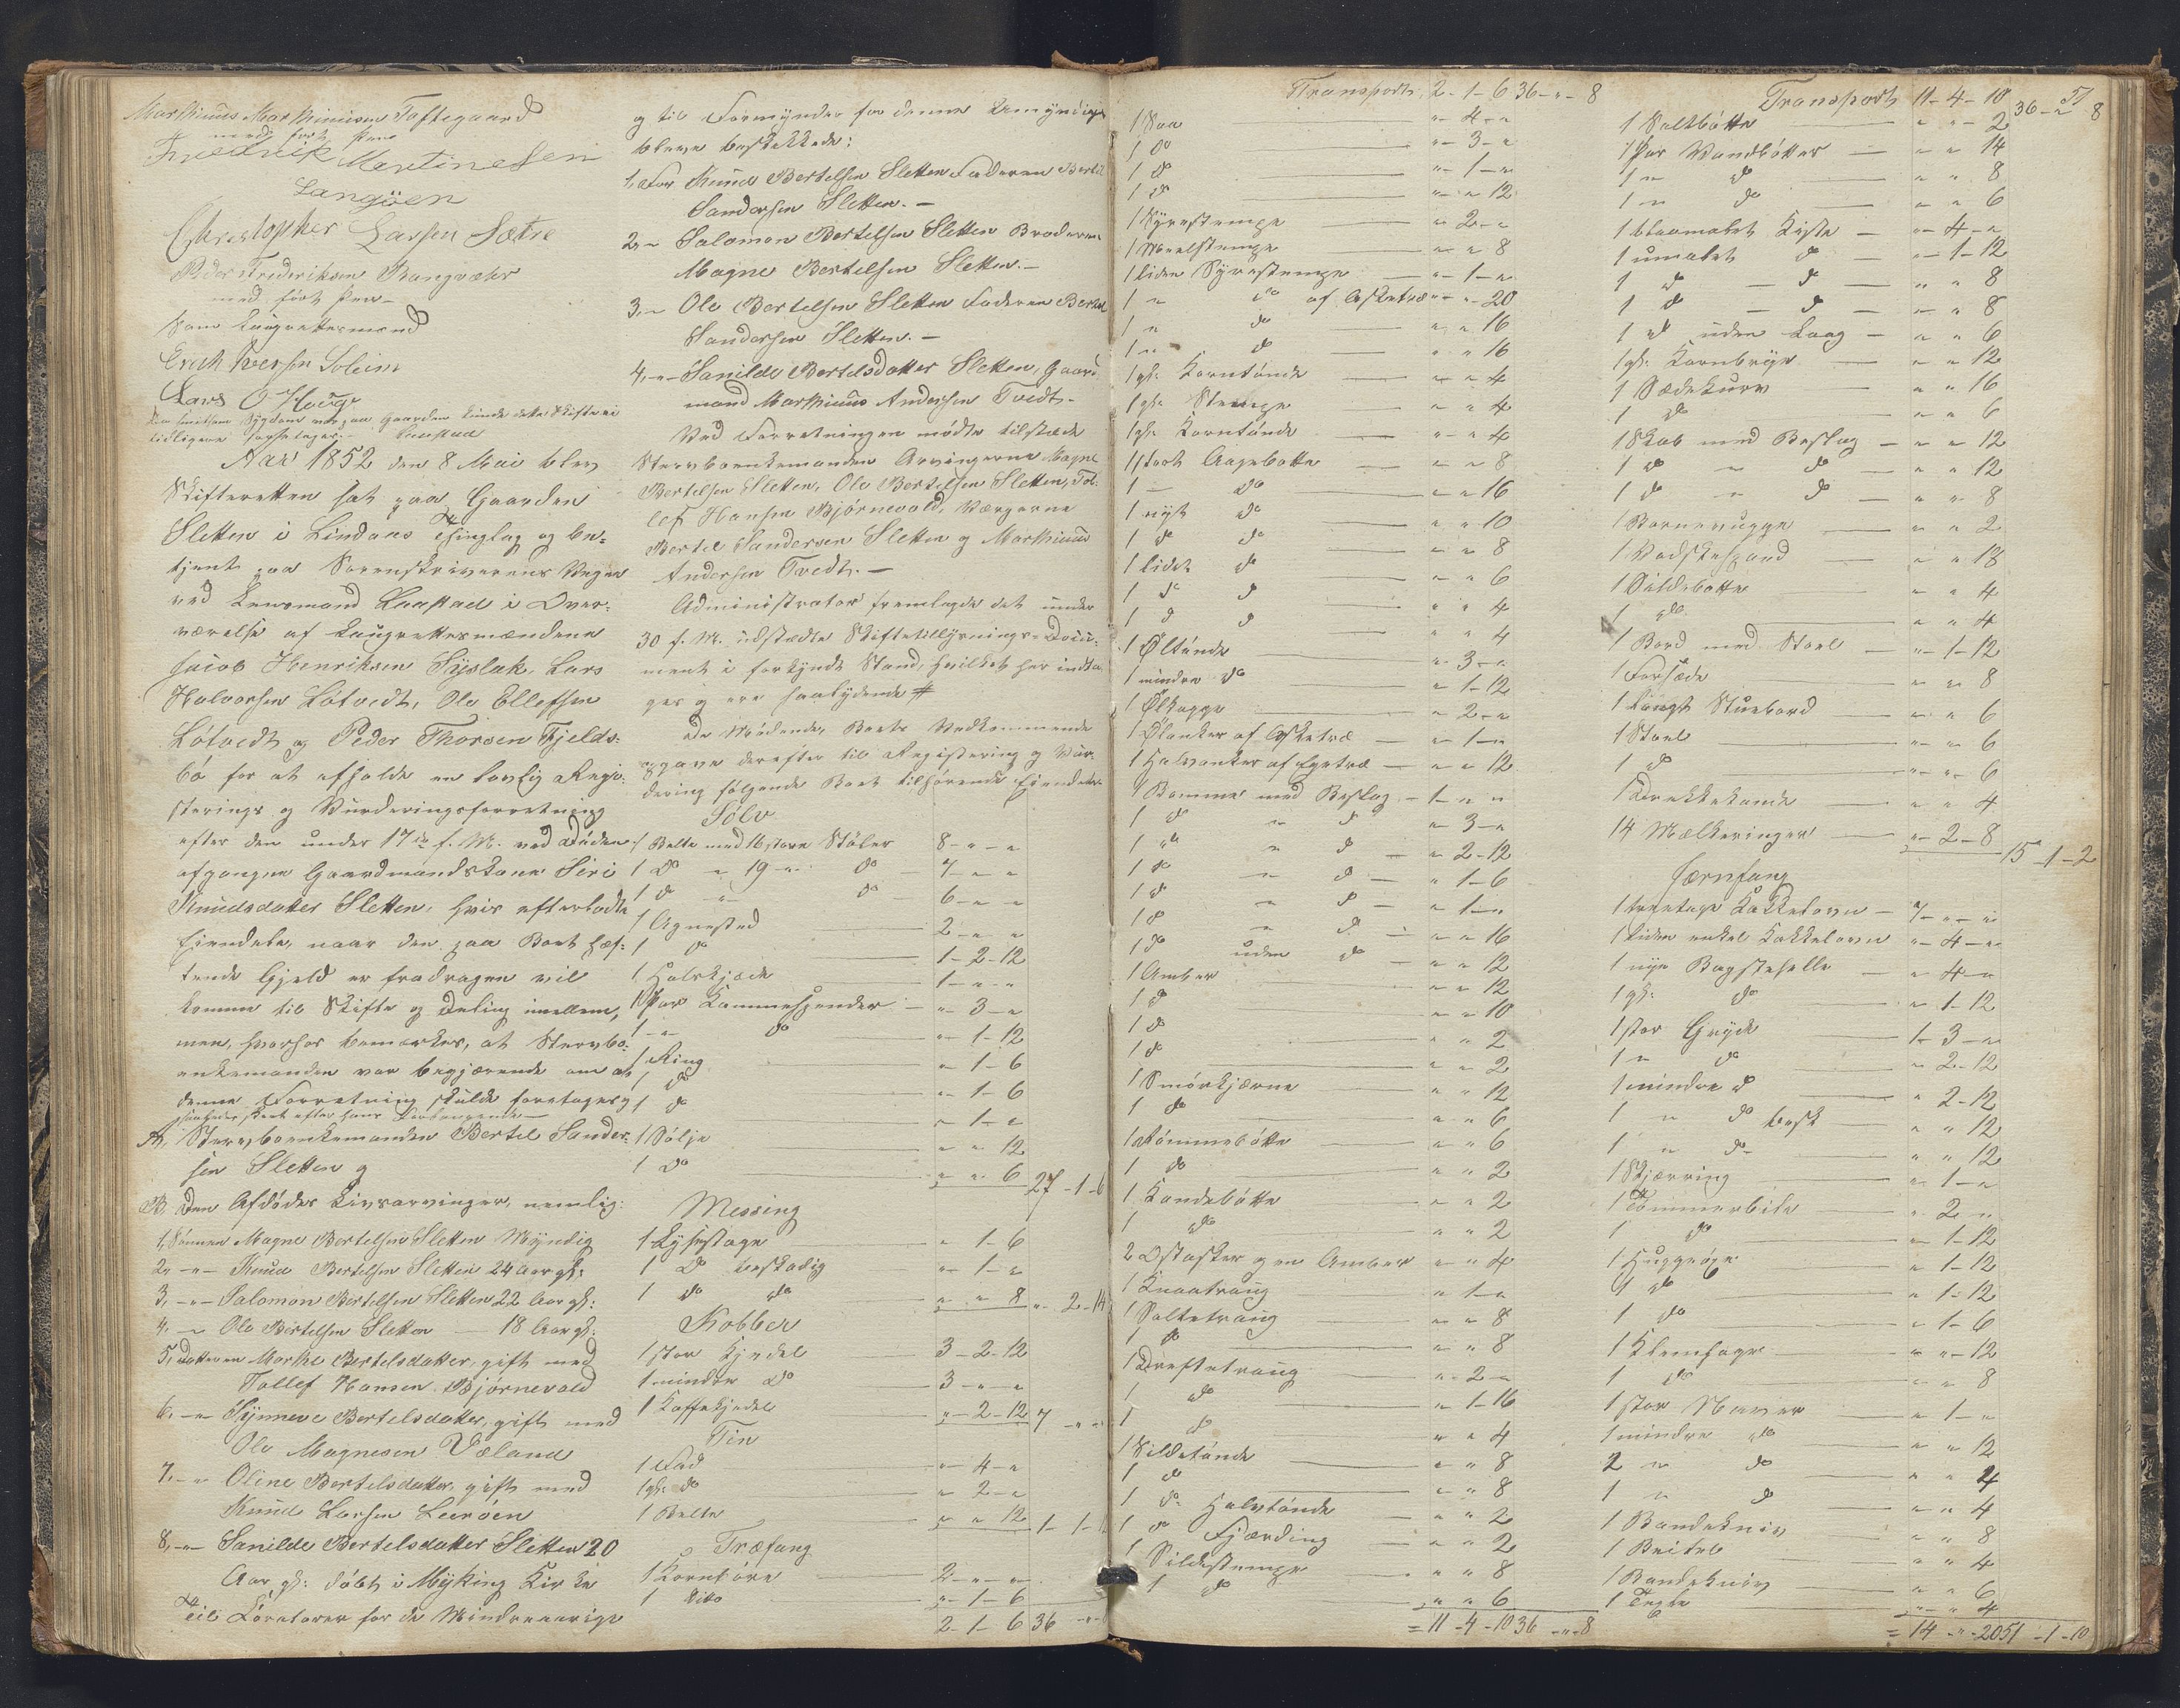 Marthinus Marthinusen Toftegaard
med ført Pen
Fredrik Martinesen
Langøen
Christopher Larsen Sætre
Peder Frederiksen Bangvater
med ført Pen
Som Laugrettesmænd
Erich Iversen Soleim
Lars O Hauge
tidligere foretages.
Aar 1852 den 8 Mai blev
Skifteretten sat paa Gaarden
Sletten i Lindaas Thinglag og be-
tjent paa Sorenskriverens Vegne
ved Lensmand Laastad i Over-
værelse af Laugrettesmændene
Jacob Henriksen Syslak, Lars
Halvorsen Løtvedt, Ole Ellefsen
Løtvedt og Peder Thorsen Fjelds-
bø for at afholde en lovlig Regi-
sterings og Vurderingsforretning
efter den under 17de f. M. ved Døden
afgangne Gaardmandskone Siri
Knudsdatter Sletten, hvis efterladte
Eiendele, naar den paa Boet hef-
tende Gjeld er fradragen vil
komme til Skifte og Deling imellem,
men, hvorhos bemærkes, at Stervbo-
enkemanden var begjærende om at
denne Forretning skulde foretages
A, Stervboenkemanden Bertel Sander-
sen Sletten og
B, Den Afdødes Livsarvinger, nemlig:
1, Sønnen Magne Bertelsen Sletten Myndig
2, -"- Knud Bertelsen Sletten 24 Aar gl:
3, -"- Salomon Bertelsen Sletten 22 Aar gl:
4, -"- Ole Bertelsen Sletten - 18 Aar gl:
5, Datteren Marthe Bertelsdatter, gift med
Tollef Hansen Bjørnevold
6, -"- Synneve Bertelsdatter, gift med
Ole Magnesen Væland
7, -"- Oline Bertelsdatter, gift med
Knud Larsen Leerøen
8, -"- Sanilde Bertelsdatter Sletten 20
Aar gl: døbt i Myking Kirke
Til Curatorer for de Mindreaarige
og til Formynder for denne Umyndige
bleve beskikkede:
1, For Knud Bertelsen Sletten Faderen Bertel
Sandersen Sletten. -
2, " Salomon Bertelsen Sletten Broderen
Magne Bertelsen Sletten. -
3, " Ole Bertelsen Sletten Faderen Bertel
Sandersen Sletten. -
4, -"- Sanilde Bertelsdatter Sletten, Gaard-
mand Marthinus Andersen Tvedt. -
Ved Forretningen mødte tilstede
Stervboenkemanden Arvingerne Magne
Bertelsen Sletten, Ole Bertelsen Sletten, Tol-
lef Hansen Bjørnevold, Værgerne
Bertel Sandersen Sletten og Marthinus
Andersen Tvedt. -
Administrator fremlagde det under
30 f. M. udstædte Skiftetillysnings-Docu-
ment i forkyndt Stand, hvilket her indta-
ges og er saalydende #
De Mødende, Boets Vedkommende
opgave derefter til Registering og Vur-
dering følgende Boet tilhørende Eiendele
Sølv
1 Belte med 16 store Støler 8 - " - "
1 Do " 19 " Do 7 - " - "
1 Do " Do 6 - " - "
1 Agnested 2 - " - "
1 Do 1 - 2 - 12
1 Halskjæde 1 - " - "
1 Par Kammespender " - 3 - "
1 - " Do " - 1 - 12
1 Ring " - 1 - 6
1 Do " - 1 - 6
1 Do " - 1 - "
1 Sølje " - " - 12
1 Do " - " - 6 27 - 1 - 6
Messing
1 Lysestage " - 1 - 6
1 Do beskadig " - 1 - "
1 Do Do " - " - 8 " - 2 - 14
Kobber
1 stor Kjedel 3 - 2 - 12
1 mindre Do 3 - " - "
1 Kaffekjedel " - 2 - 12 7 - " - "
Tin
1 Fad " - 4 - "
1 gl: Do " - 2 - "
1 Belte " - " - 12 1 - 1 - 12
Træfang
1 Korntøre 2 - " - "
1 Ditto " - 1 - 6
2 - 1 - 6 36 - " - 8
Transport 2 - 1 - 6 36 - " - 8
1 Saa " - 4 - "
1 Do " - 3 - "
1 Do " - 1 - "
1 Do " - " 12
1 Syrestempe " - 2 - "
1 Meelstempe " " 8
1 liden Syrestempe " - 1 - "
1 " Do af Asketræ " - " - 20
1 " Do " " 16
1 " Do " " 16
1 gl: Korntønde " " 4
1 gl: Stempe " " 4
1 gl: Korntønde " " 4
1 stort Aagebøtte " " 8
1 - Do " " 16
1 nyt Do " " 10
1 Do Do " " 8
1 lidet Do " " 6
1 Do Do " " 4
1 Do Do " " 4
1 Øltønde " - 3 - "
1 mindre Do " 1 - 12
1 Ølkagge " 2 - "
1 Ølanker af Asketræ " - 1 - "
1 Halvanker af Egetræ " " 12
1 Bomme med Beslag - 1 - " "
1 Do " Do " 3 - "
1 Do " Do " 2 - 12
1 Do " Do " 1 - 6
1 Do " Do " 1 - "
1 Do " Do " " 16
1 Do uden Do " " 12
1 Amber " " 12
1 Do " " 10
1 Do " " 2
1 Do " " 2
1 Smørkjærne " " 12
1 Do " " 6
1 Rømmebøtte " " 6
1 Do " " 2
1 Kandebøtte " " 2
1 Do " " 2
2 Ostasker og en Amber " " 4
1 Knaatraug " 1 - "
1 Saltetraug " " 8
1 Do " " 8
1 Drøftetraug " 2 - "
1 Do " 1 - 16
1 Do " " 4
1 Sildetønde " " 8
1 Do " " 8
1 Do Halvtønde " " 2
1 Do Fjærding " " 2
1 Sildestempe " " 8
1 Do " " 6
= 11 - 4 - 10 36 - " - 8
51
Transport 11 - 4 - 10 36 - " 8
1 Saltbøtte " " - 2
1 Par Vandbøtter " " 14
1 " Do " " 8
1 " Do " " 6
1 blaamalet Kiste " - 4 - "
1 umalet Do " - 1 - 12
1 Do - Do " " 8
1 Do - Do " " 8
1 Do uden Laag " " 6
1 gl: Kornbryn " " 12
1 Sædekurv " " 16
1 Do " " 6
1 Skab med Beslag " " 12
1 Do " Do " " 12
1 Do " Do " " 8
1 Barnevugge " " 2
1 Vadskespand " " 18
1 Sildebøtte " " 4
1 Do " " 4
1 Bord med Stoel " - 1 - 12
1 Forsæde " " 8
1 Langt Stuebord " " 6
1 Stoel " " 6
1 Do " " 6
1 Drikkekande " " 4
14 Mælkeringer " - 2 - 8 15 - 1 - 2
Jernfang
1 toeetages Kakkelovn 7 - " - "
1 liden enkel Kakkelovn " - 4 - "
1 nye Bagstehelle " 4 - "
1 gl: Do " 1 - 12
1 stor Gryde 1 - 3 - "
1 " Do " 2 - 12
1 mindre Do " 2 - 12
1 " Do besk " " 12
1 " Do " " 12
1 Skjærring " 1 - "
1 Tømmerbile " 2 - "
1 Do " 1 - 12
1 Huggeøxe " 1 - 12
1 Do " 1 - 12
1 Do " 1 - 6
1 Klemsage " " - 12
1 Do " " 8
1 stor Naver " 1 - "
1 mindre Do " " 12
2 " Do " " 4
1 " Do " " 4
1 Bandekniv " " 8
1 Beitel " " 4
1 Bandekniv " " 6
1 Texle " " 4
= 14 - " - 20 51 - 1 - 10